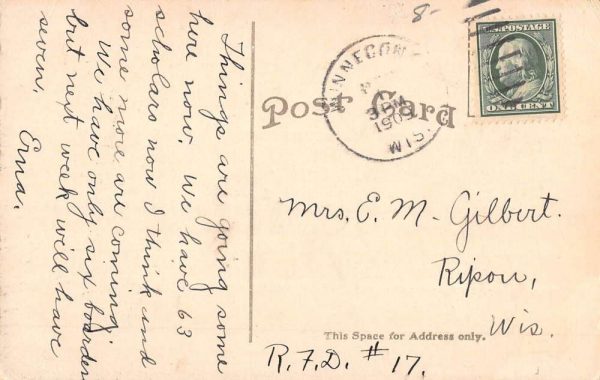 Things are going some
here now. We have 63
scholars now I think and
some more are coming.
We have only six boarders
but next week will have
seven.
Erna.
8-
WINNECON
3 PM
1909
WIS.
U.S. POSTAGE
ONE CENT
Post Card
Mrs. E. M. Gilbert.
Ripon,
Wis.
This Space for Address only.
R.F.D. #17.